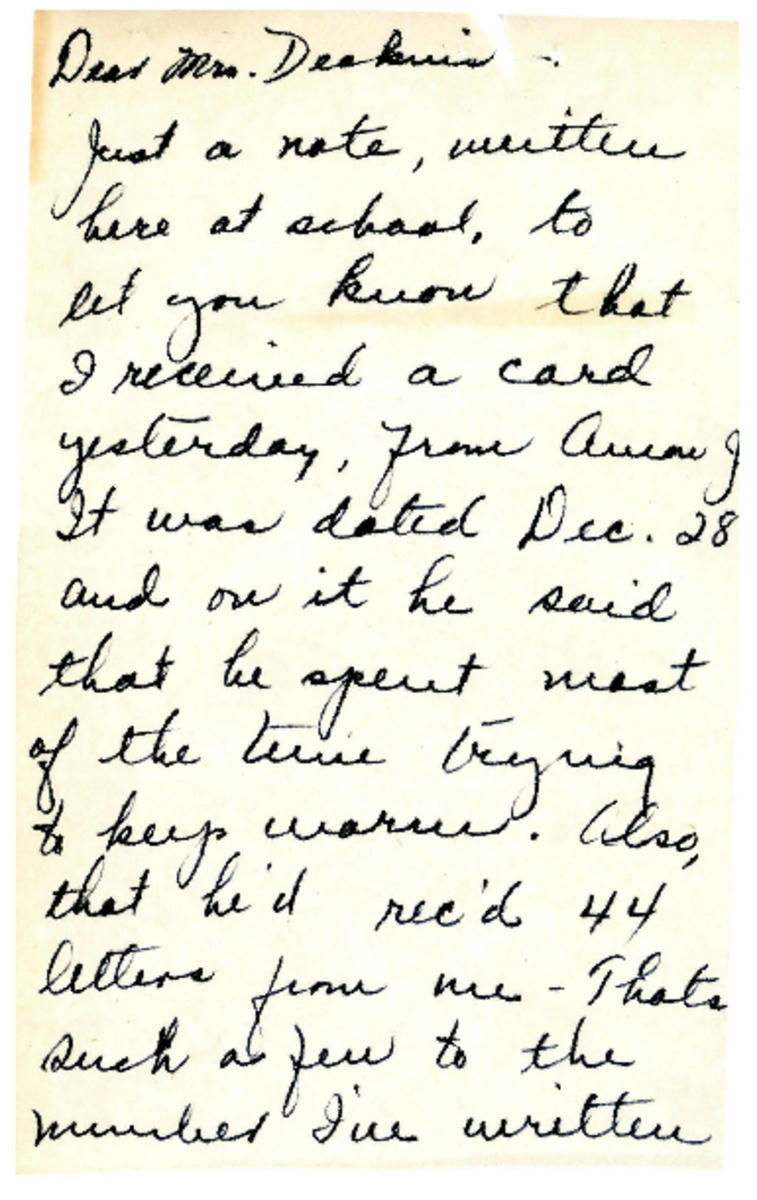 Dear Mrs. Deakins -.
Just a note, written
here at school, to
let you know that
I received a card
yesterday, from Amon J
It was dated Dec. 28
and on it he said
that he spent most
of the time trying
to keep warm. Also,
that he'd rec'd 44
letters from me - Thats
such a few to the
number I've written